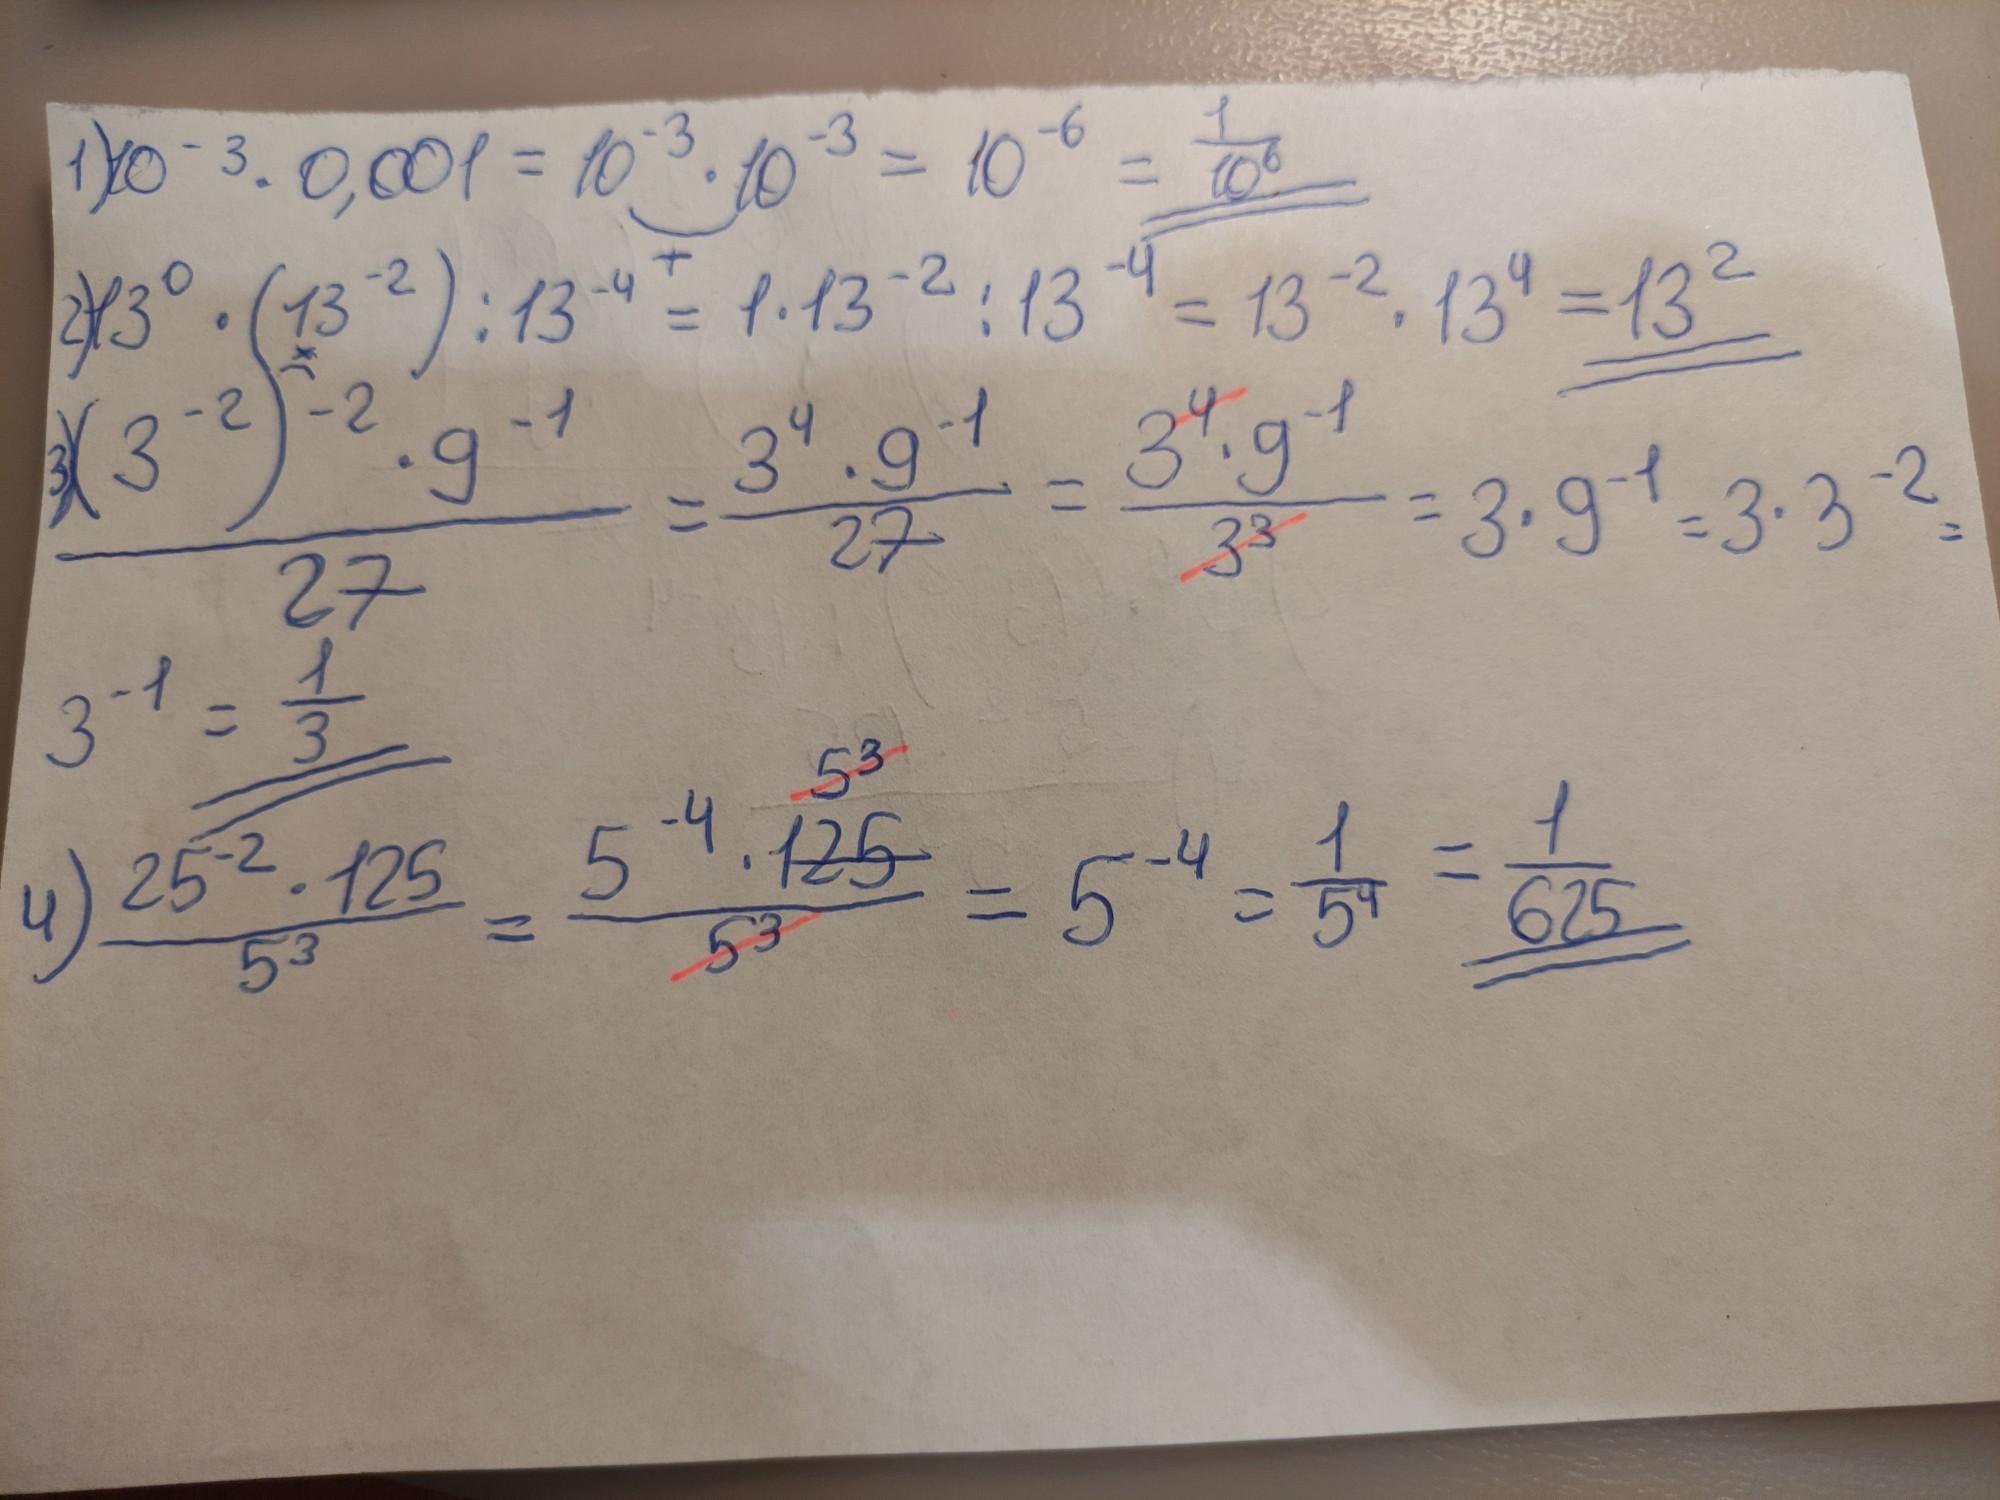 1) 10⁻³ · 0,001 = 10⁻³ · 10⁻³ = 10⁻⁶ = 1/10⁶
+
2) 13⁰ · (13⁻²) : 13⁻⁴ = 1 · 13⁻² : 13⁻⁴ = 13⁻² · 13⁴ = 13²
x
3) (3⁻²)⁻² · 9⁻¹ / 27 = 3⁴ · 9⁻¹ / 27 = 3⁴ · 9⁻¹ / 3³ = 3 · 9⁻¹ = 3 · 3⁻² =
3⁻¹ = 1/3
5³
4) 25⁻² · 125 / 5³ = 5⁻⁴ · 125 / 5³ = 5⁻⁴ = 1/5⁴ = 1/625